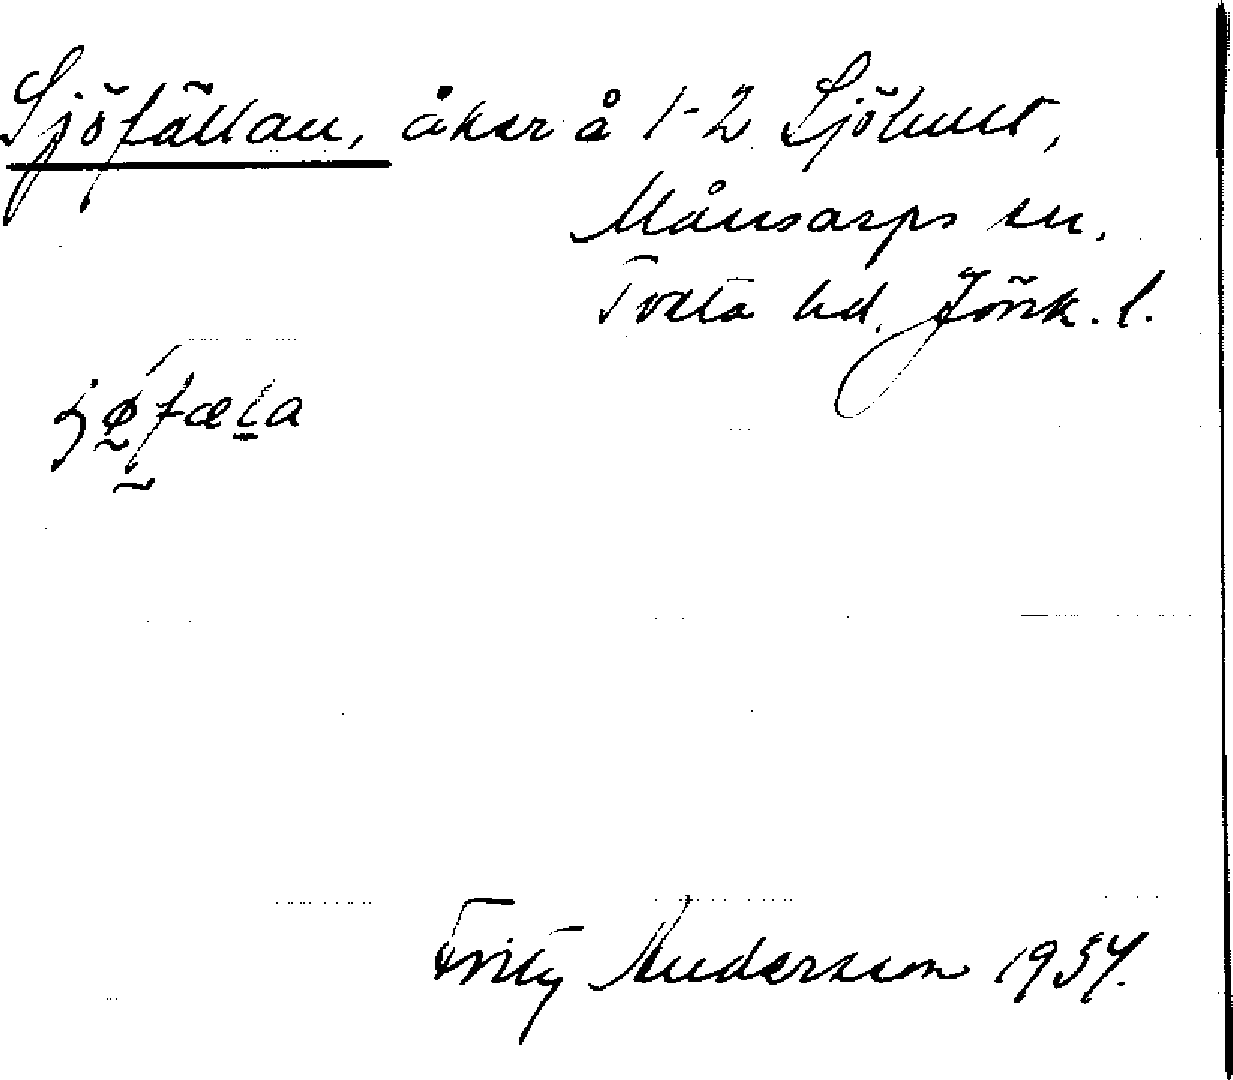 Sjöfällan, åker å 1-2 Sjöhult,
Månsarps sn.
Tveta hd. Jönk. l.
Andersson 1934.